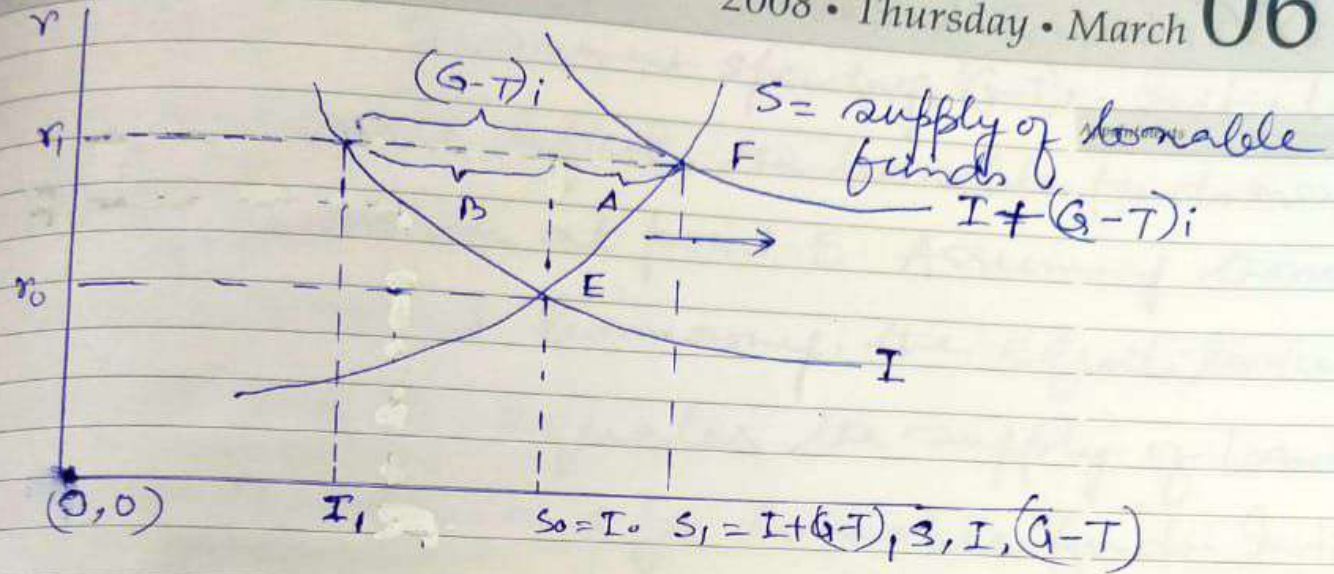 2008 • Thursday • March 06
r
(G-T)i
S = supply of loanable
funds
r1
F
B
A
I + (G-T)i
r0
E
I
(0,0)
I1
S0 = I0 S1 = I+(G-T), S, I, (G-T)